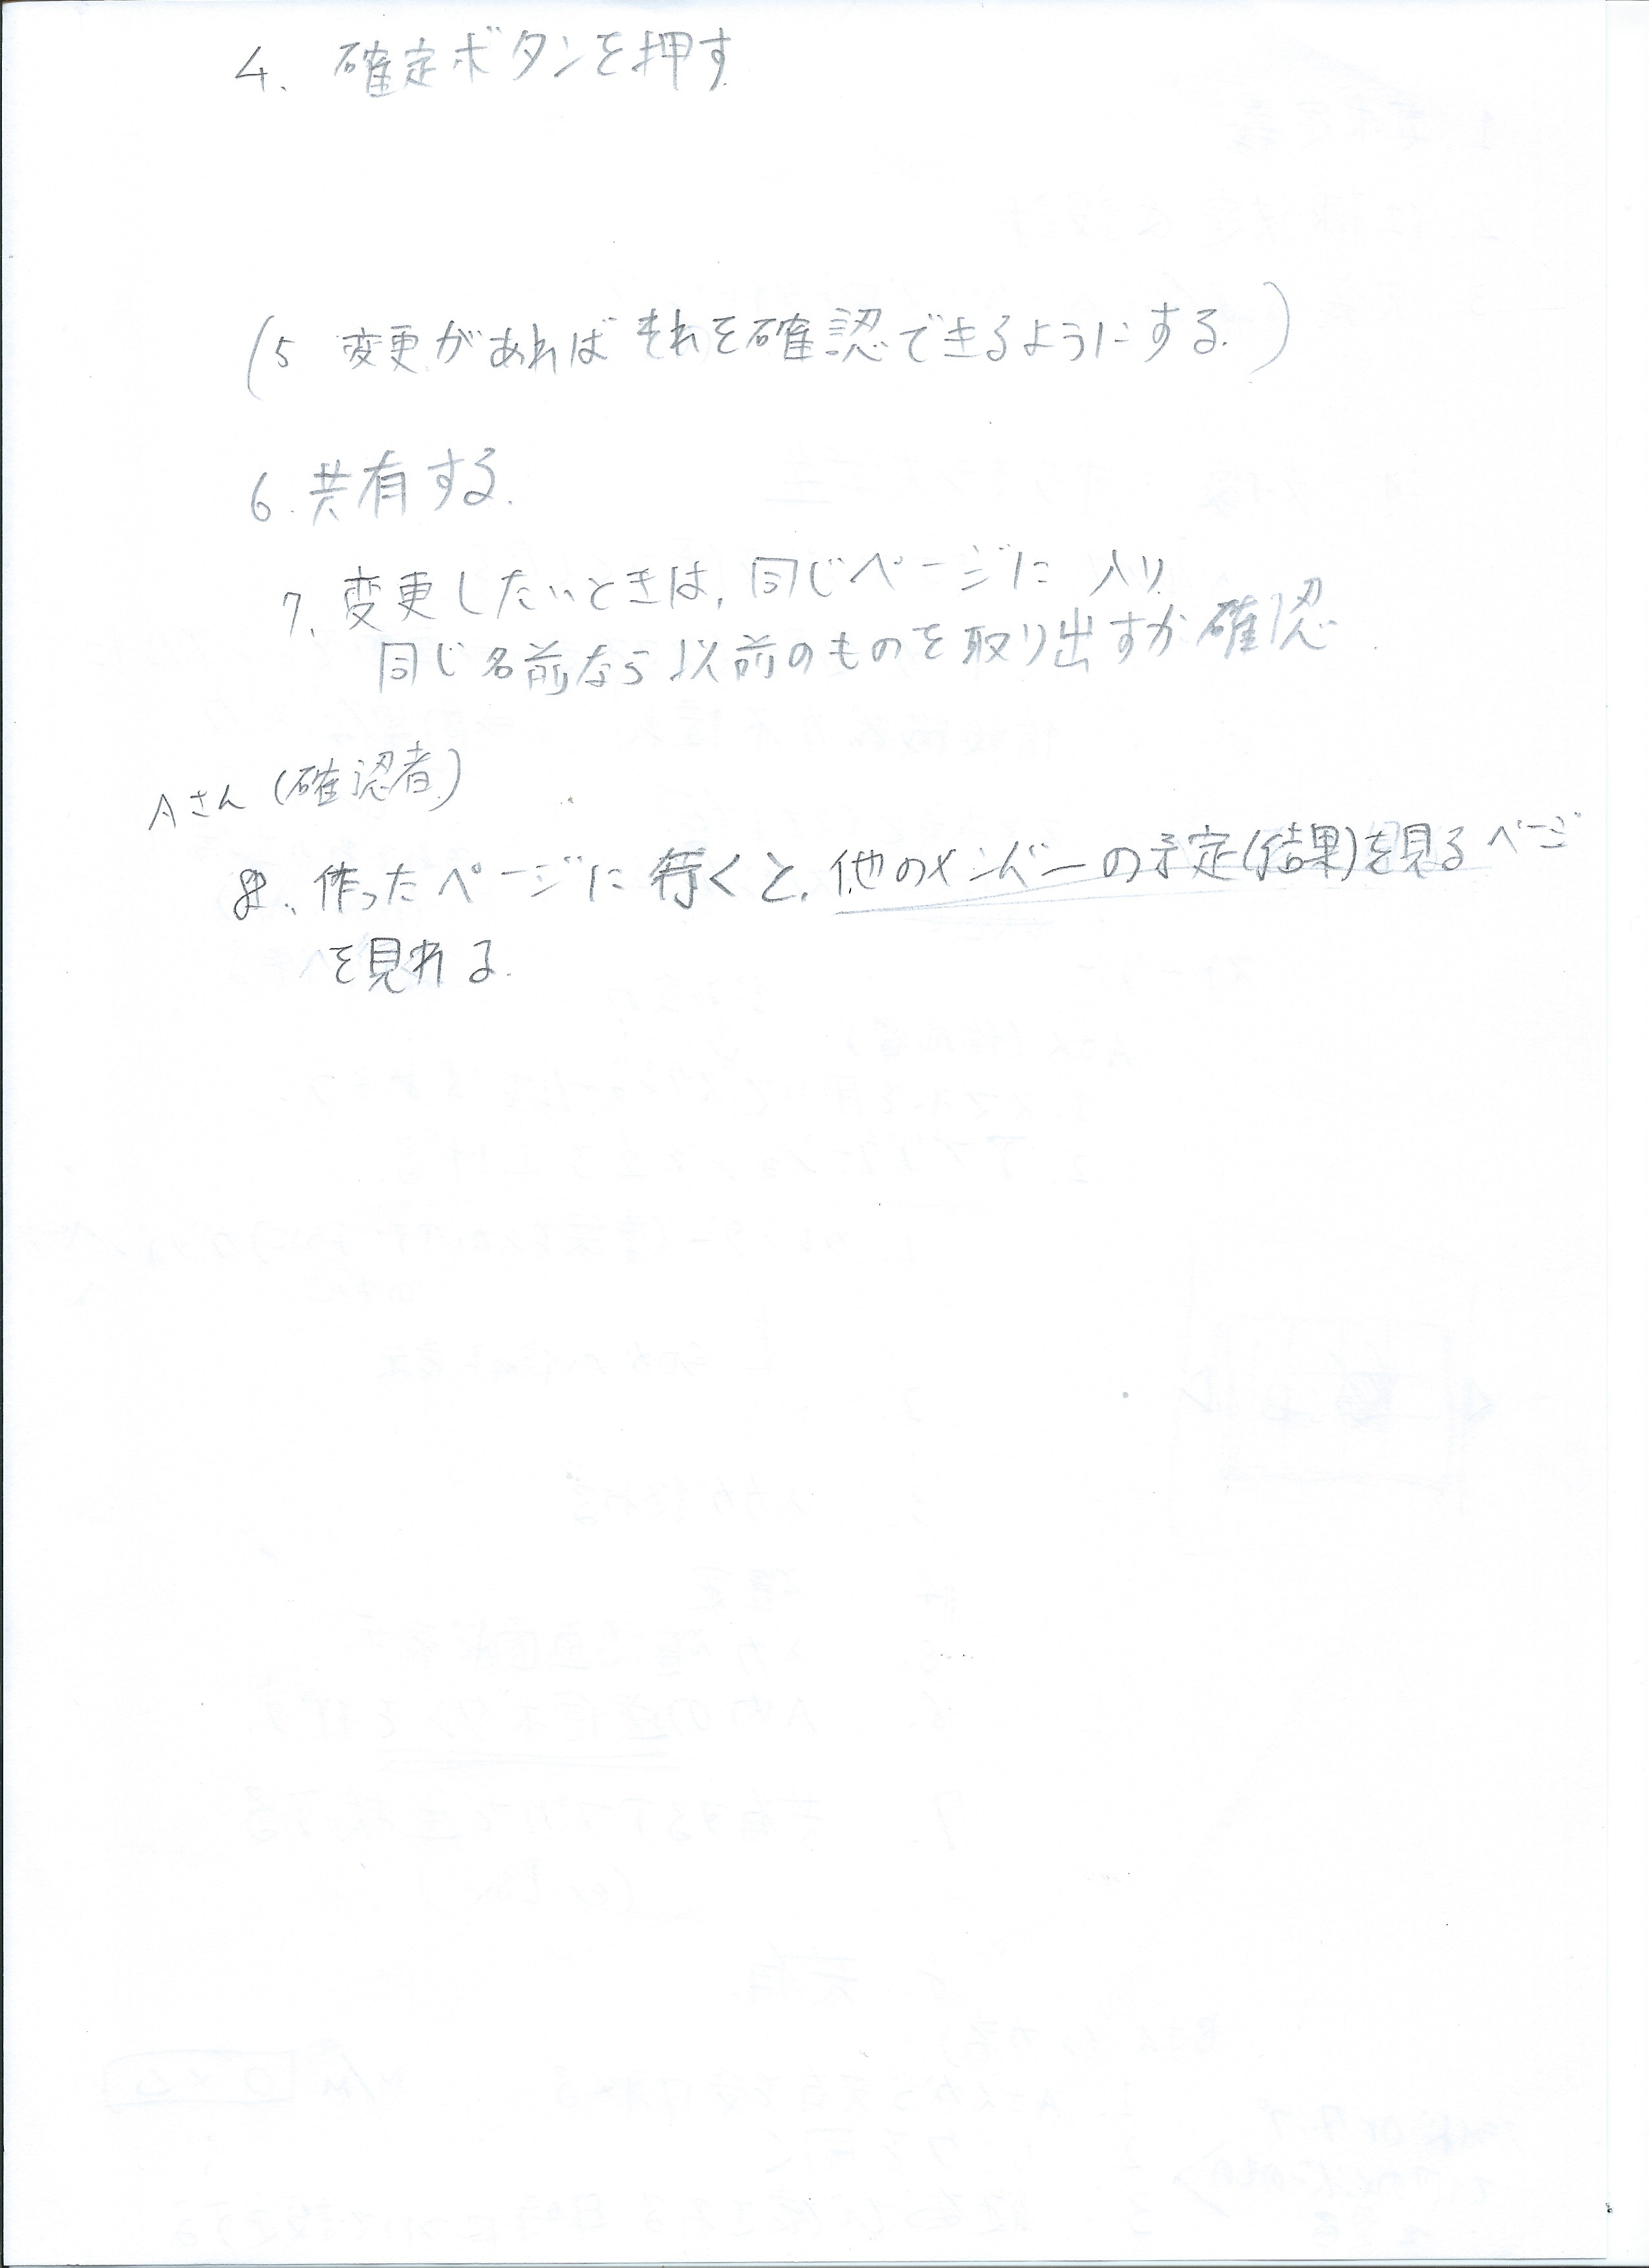 4. 確定ボタンを押す
(5 変更があればそれを確認できるようにする.)
6.共有する.
7. 変更したいときは, 同じページに入り
同じ名前なら以前のものを取り出すか確認.
Aさん (確認者)
8. 作ったページに行くと, 他のメンバーの予定(結果)を見るページ
を見れる.